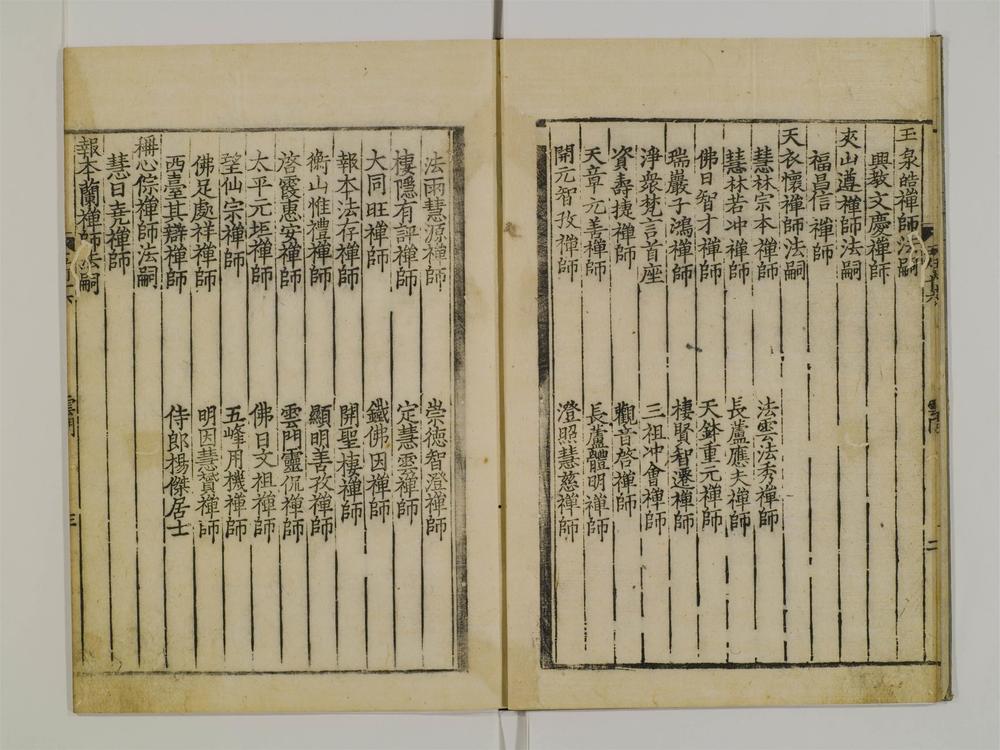 王泉皓禪師法嗣
興教文慶禪師
夾山遵禪師法嗣
福昌信禪師
天衣懷禪師法嗣
慧林宗本禪師　法雲法秀禪師
慧林若冲禪師　長蘆應夫禪師
佛日智才禪師　天鉢重元禪師
瑞巖子鴻禪師　棲賢智遷禪師
淨衆梵言首座　三祖冲會禪師
資壽捷禪師　觀音啓禪師
天章元善禪師　長蘆體明禪師
開元智孜禪師　澄照慧慈禪師
法雨慧源禪師　崇德智澄禪師
棲隱有評禪師　定慧雲禪師
大同旺禪師　鐵佛因禪師
報本法存禪師　開聖棲禪師
衡山惟禮禪師　顯明善孜禪師
啓霞惠安禪師　雲門靈侃禪師
太平元坦禪師　佛日文祖禪師
望仙宗禪師　五峰用機禪師
佛足處祥禪師　明因慧贇禪師
西臺其辯禪師　侍郎楊傑居士
稱心倧禪師法嗣
慧日堯禪師
報本蘭禪師法嗣
雲門　三